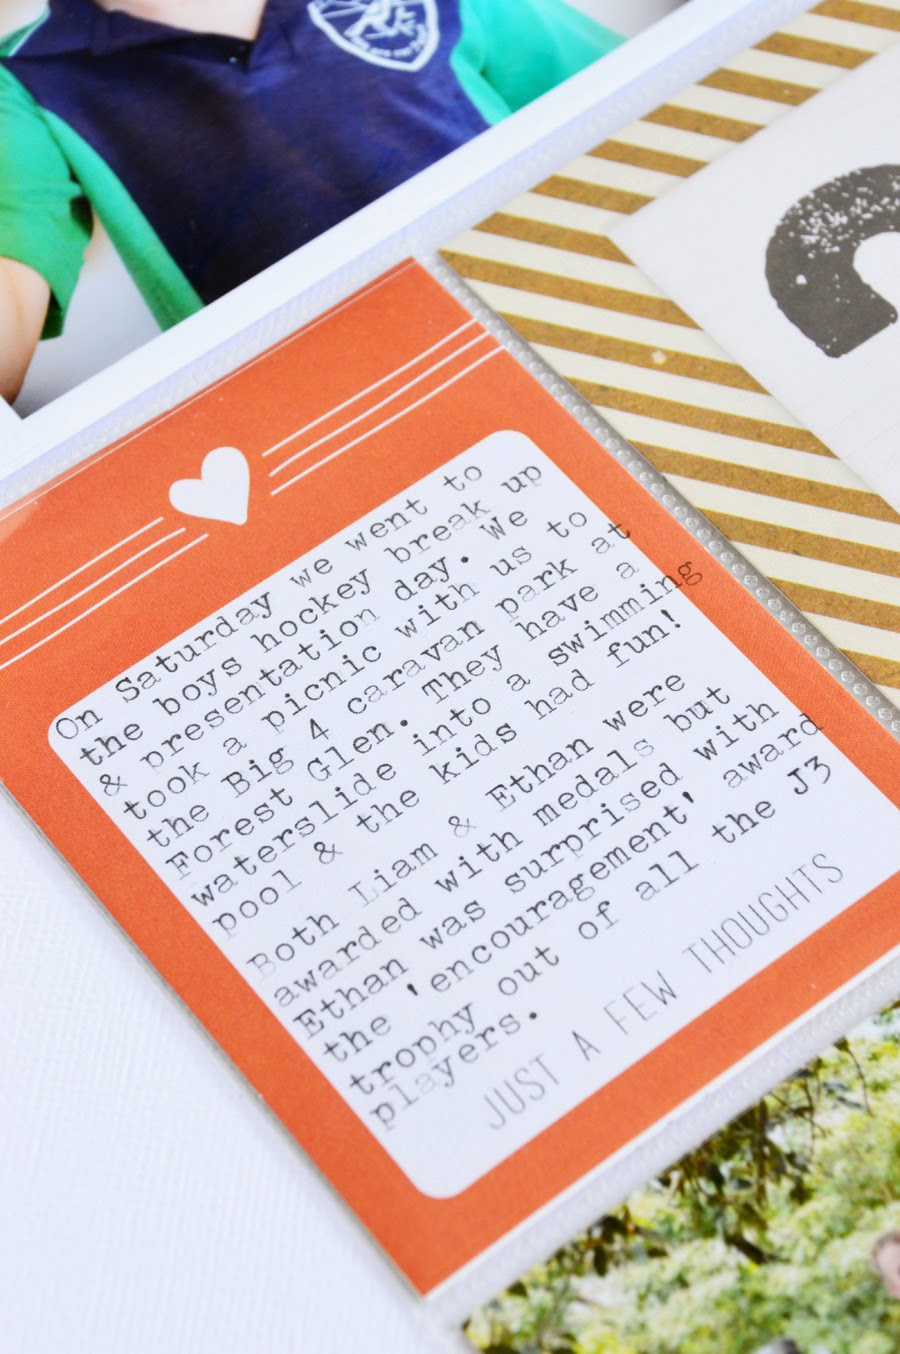 On Saturday we went to
the boys hockey break up
& presentation day. We
took a picnic with us to
the Big 4 caravan park at
Forest Glen. They have a
waterslide into a swimming
pool & the kids had fun!
Both Liam & Ethan were
awarded with medals but
Ethan was surprised with
the 'encouragement' award
trophy out of all the J3
players.
JUST A FEW THOUGHTS